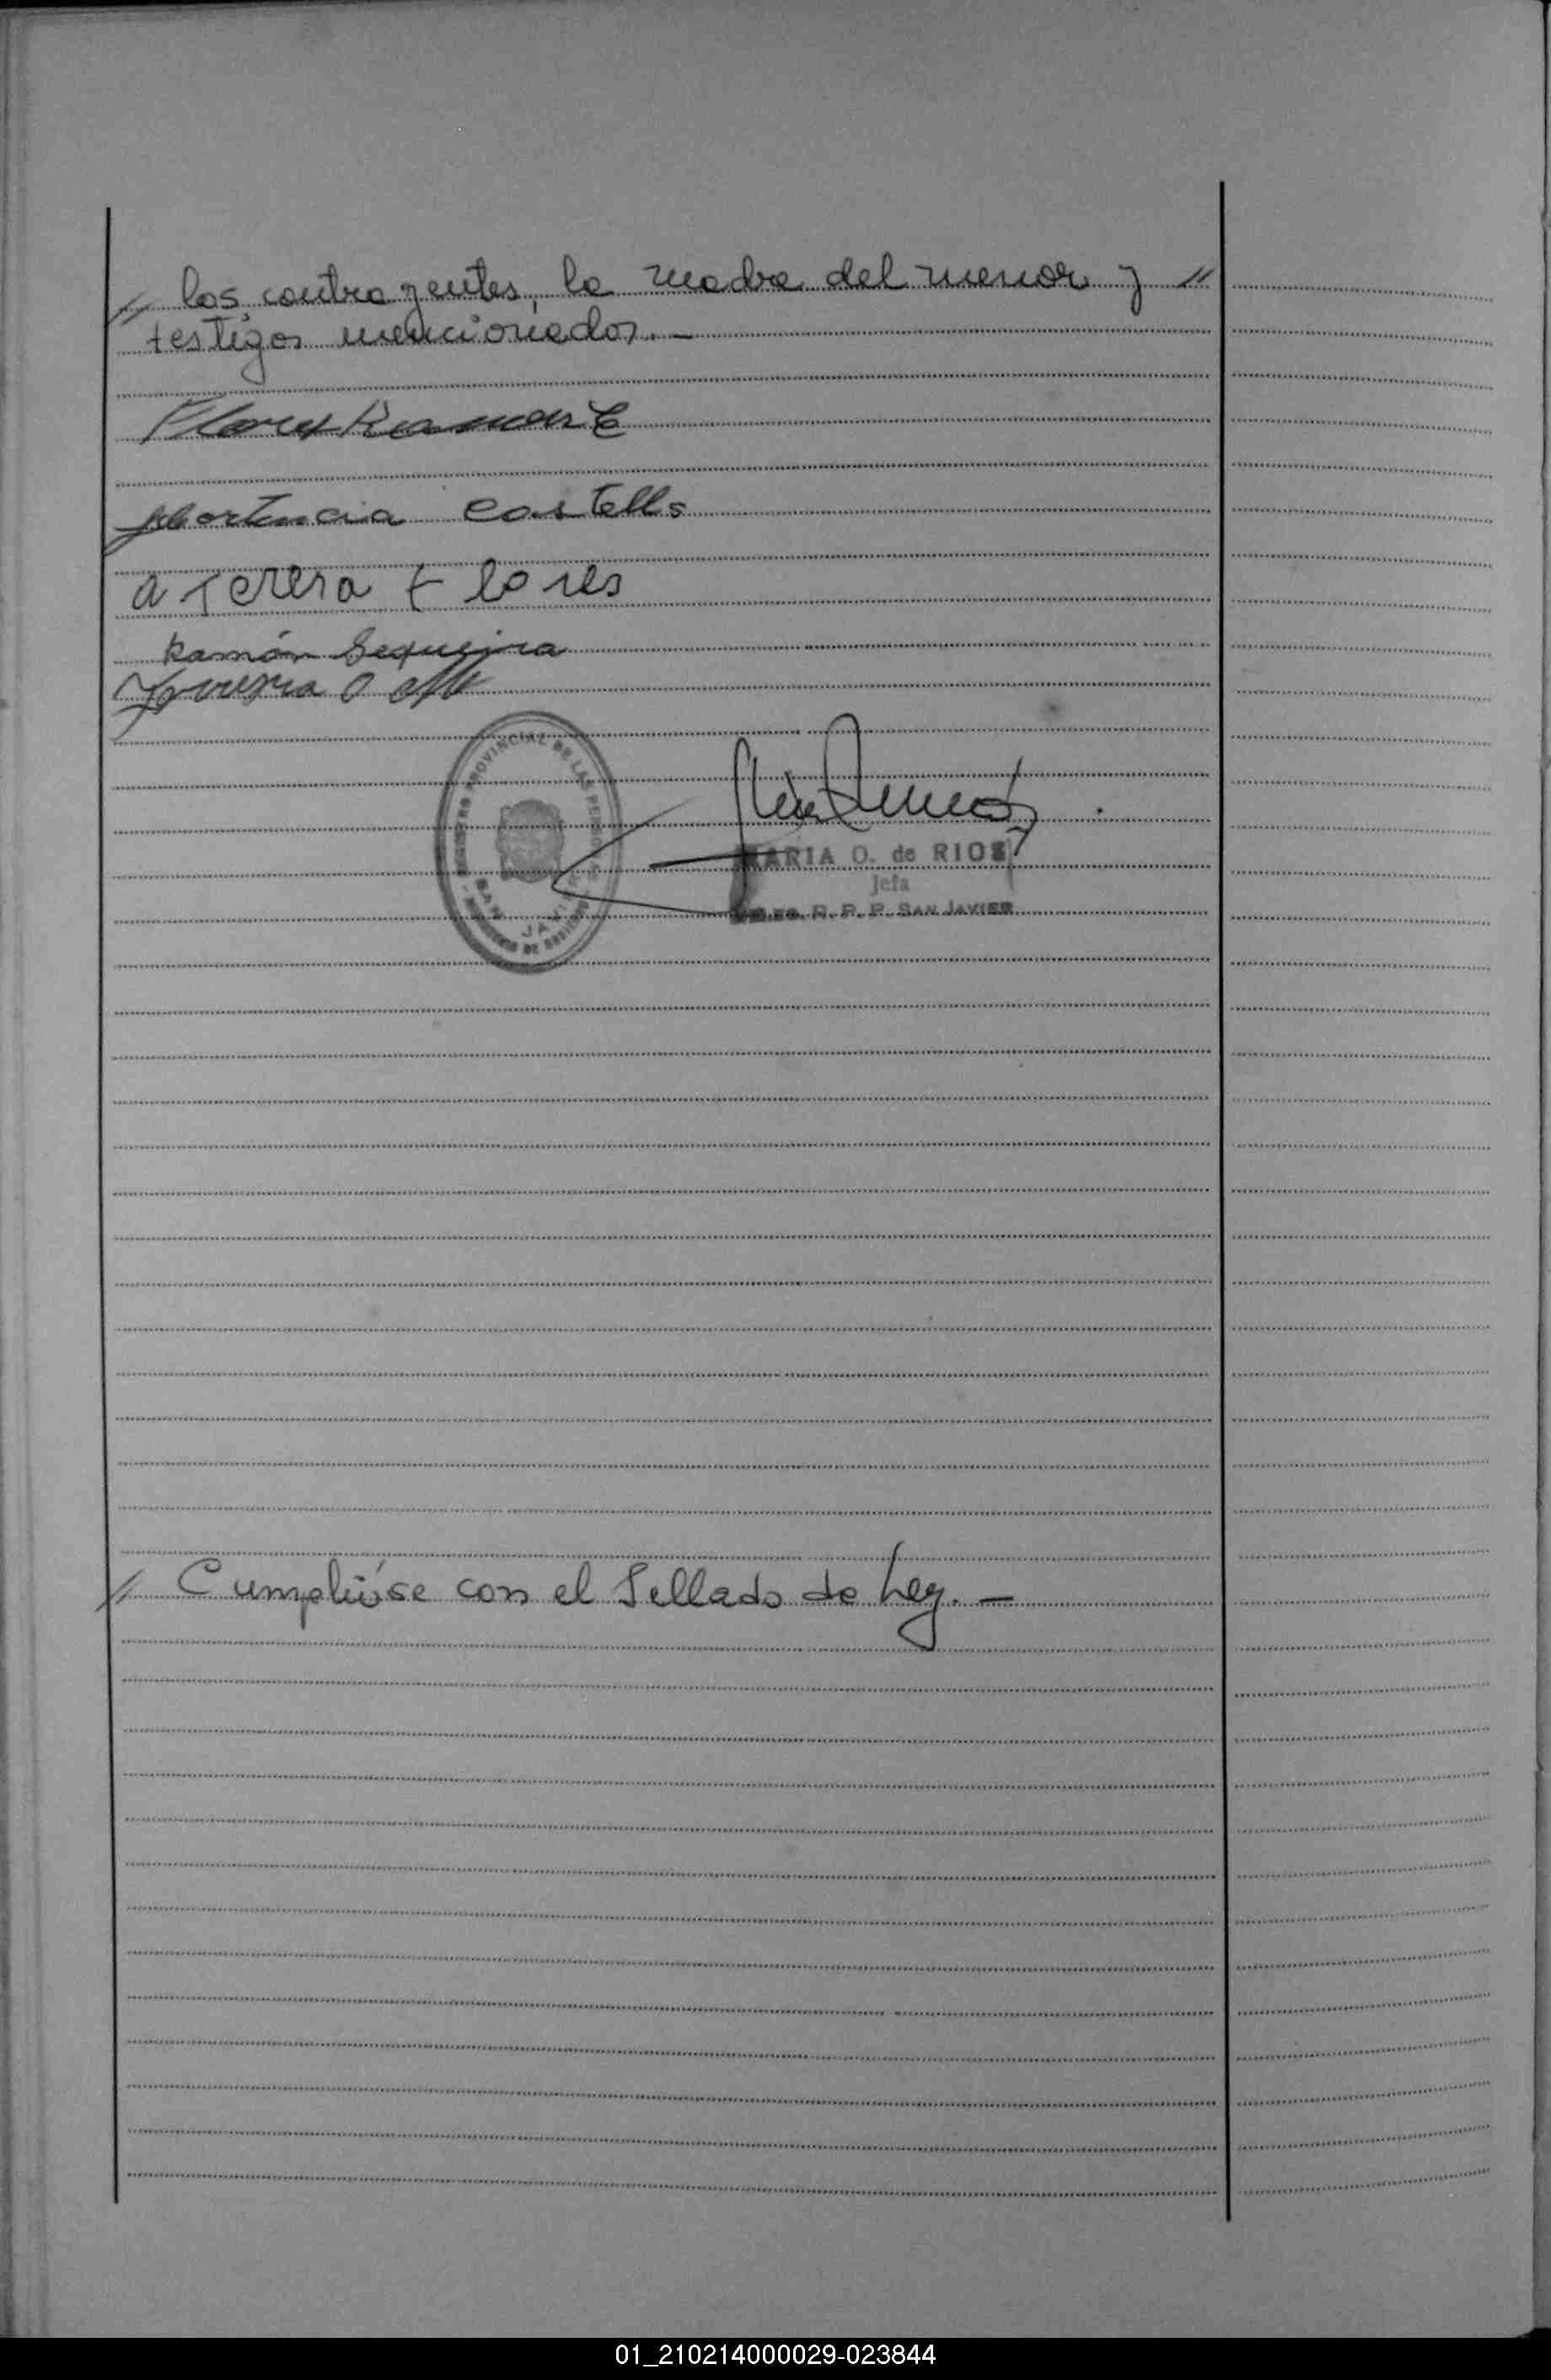 // los contrayentes, la madre del menor y //
testigos mencionados. —
Flores Ramon E
Hortencia Castello
a Teresa Flores
Ramón Sequeira
PROVINCIAL DE LAS PERSONAS
SAN JAVIER
MARIA O. de RIOS
Jefa
R. P. P. SAN JAVIER
// Cumplióse con el Sellado de Ley. —
01_210214000029-023844